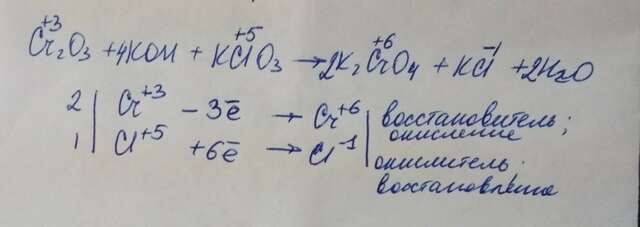 +3 +5 +6 -1
Cr₂O₃ + 4KOH + KClO₃ → 2K₂CrO₄ + KCl + 2H₂O
2 | Cr⁺³ - 3ē → Cr⁺⁶ | восстановитель;
окисление
1 | Cl⁺⁵ + 6ē → Cl⁻¹ | окислитель.
восстановление